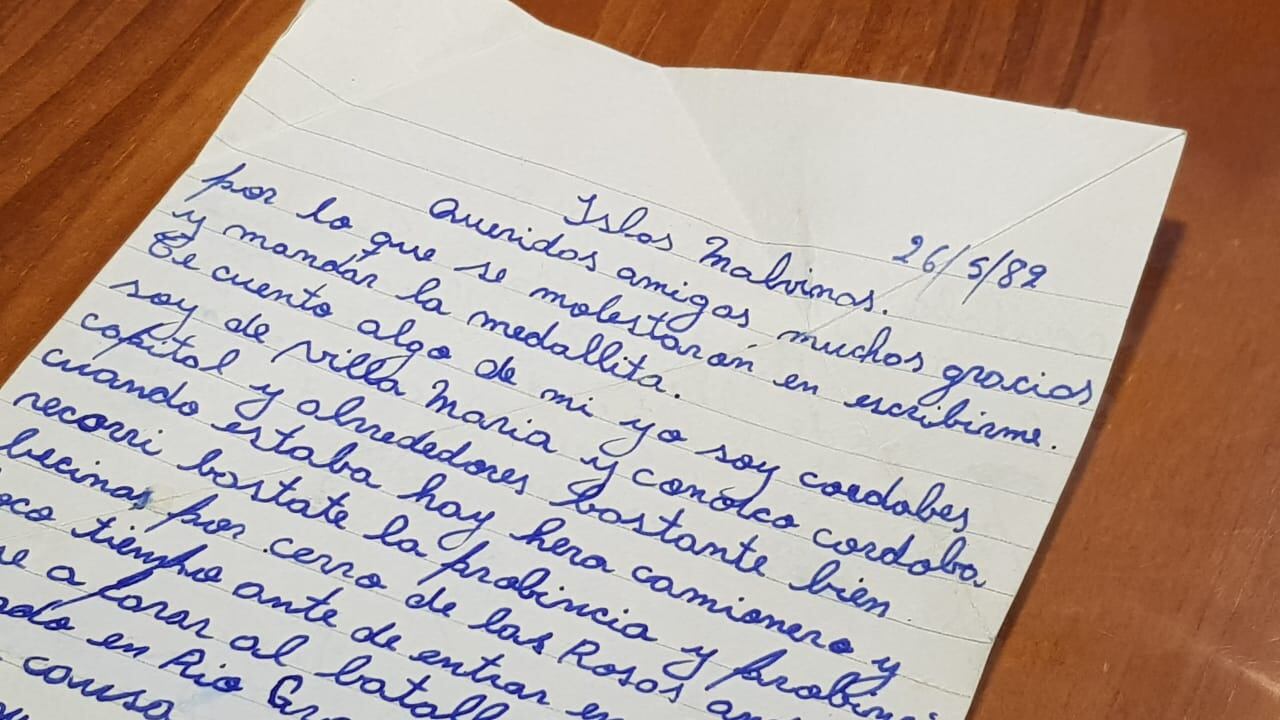 Islas Malvinas. 26/5/82
Queridos amigos muchos gracias
por lo que se molestarón en escribirme.
y mandar la medallita.
Te cuento algo de mi yo soy cordobes
soy de villa Maria y conosco cordoba
capital y alrrededores bastante bien
cuando estaba hay hera camionero y
recorri bastate la probincia y probinci
becinas por cerro de las Rosas an
tiempo ante de entrar en
a parar al batall
en Rio Gra
causa